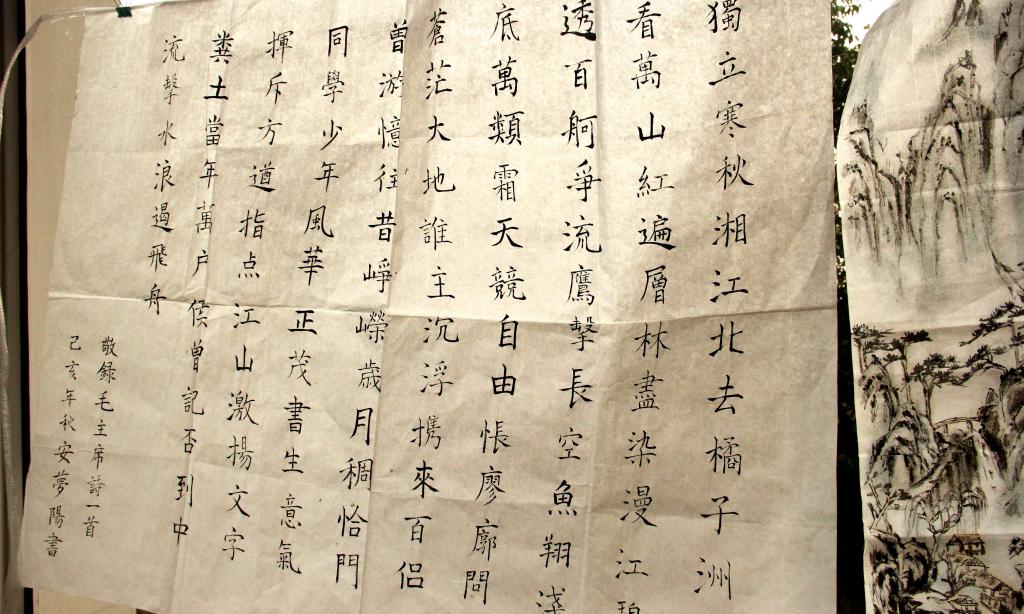 獨立寒秋湘江北去橘子洲
看萬山紅遍層林盡染漫江碧
透百舸爭流鷹擊長空魚翔淺
底萬類霜天競自由悵廖廓問
蒼茫大地誰主沉浮携來百侣
曾游憶往昔崢嶸歲月稠恰門
同學少年風華正茂書生意氣
揮斥方遒指点江山激揚文字
糞土當年萬户侯曾記否到中
流擊水浪遏飛舟
敬録毛主席詩一首
己亥年秋安夢陽書